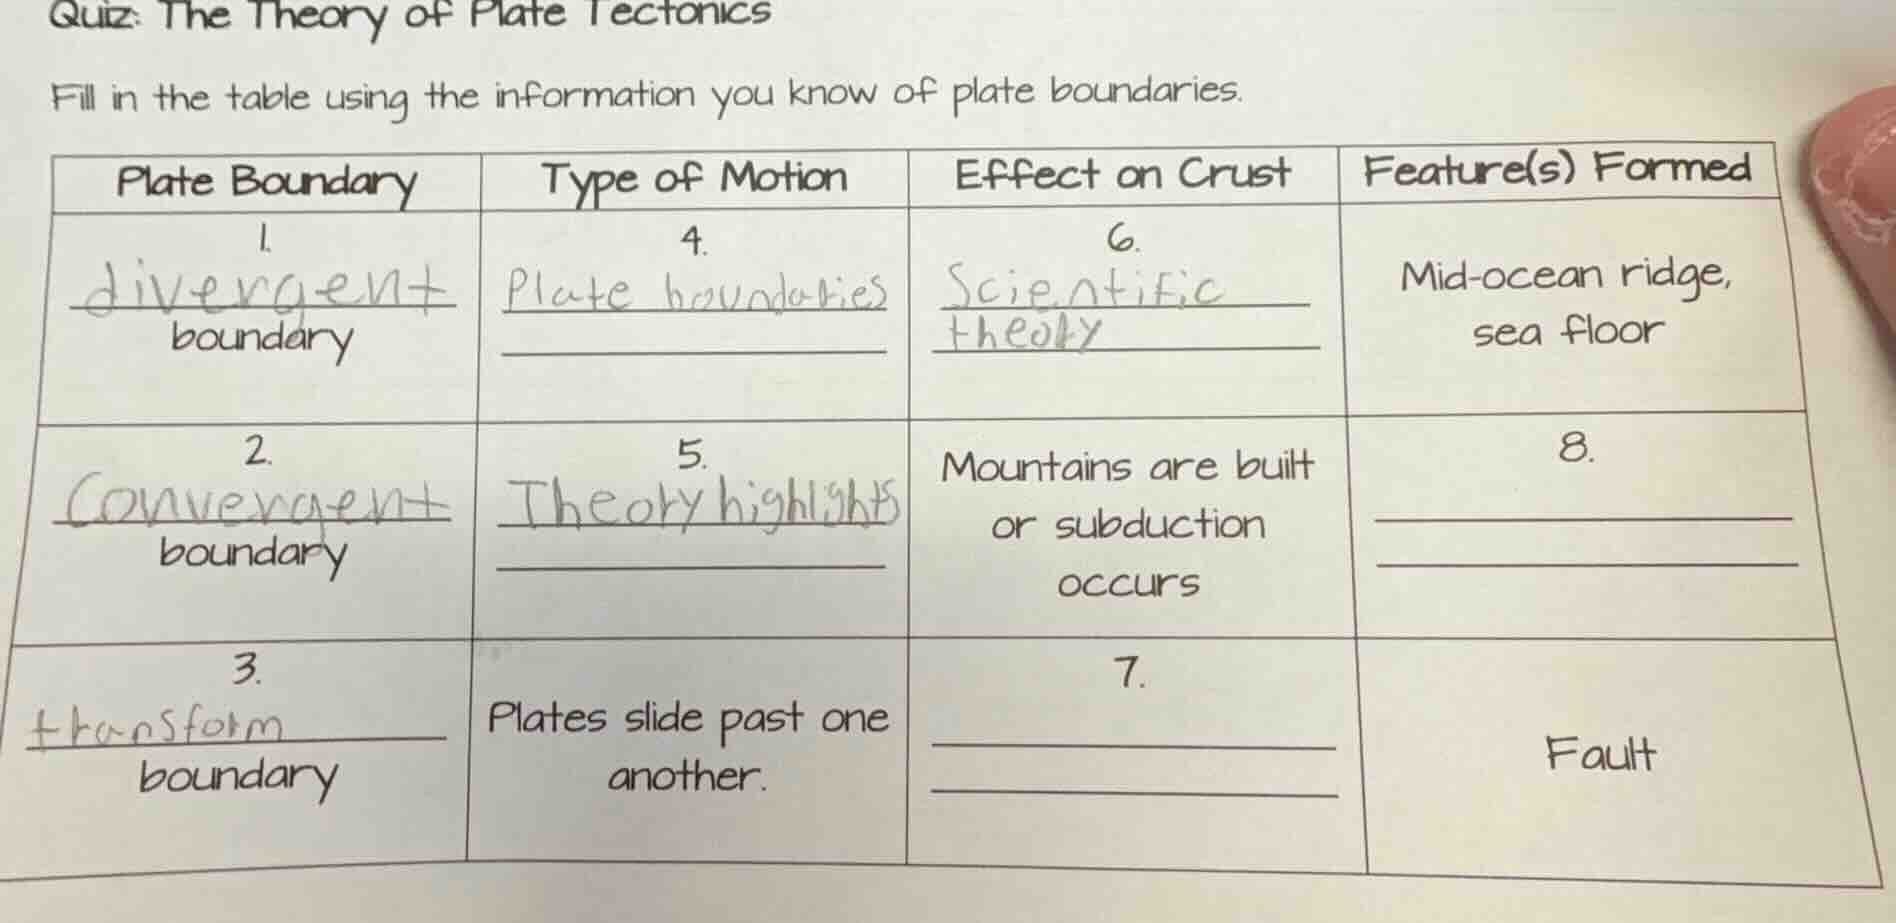 Quiz: The Theory of Plate Tectonics
Fill in the table using the information you know of plate boundaries.
Plate Boundary
Type of Motion
Effect on Crust
Feature(s) Formed
1.
divergent
boundary
4.
Plate boundaries
6.
Scientific
theory
Mid-ocean ridge,
sea floor
2.
Convergent
boundary
5.
Theory highlights
Mountains are built
or subduction
occurs
8.
3.
transform
boundary
Plates slide past one
another.
7.
Fault